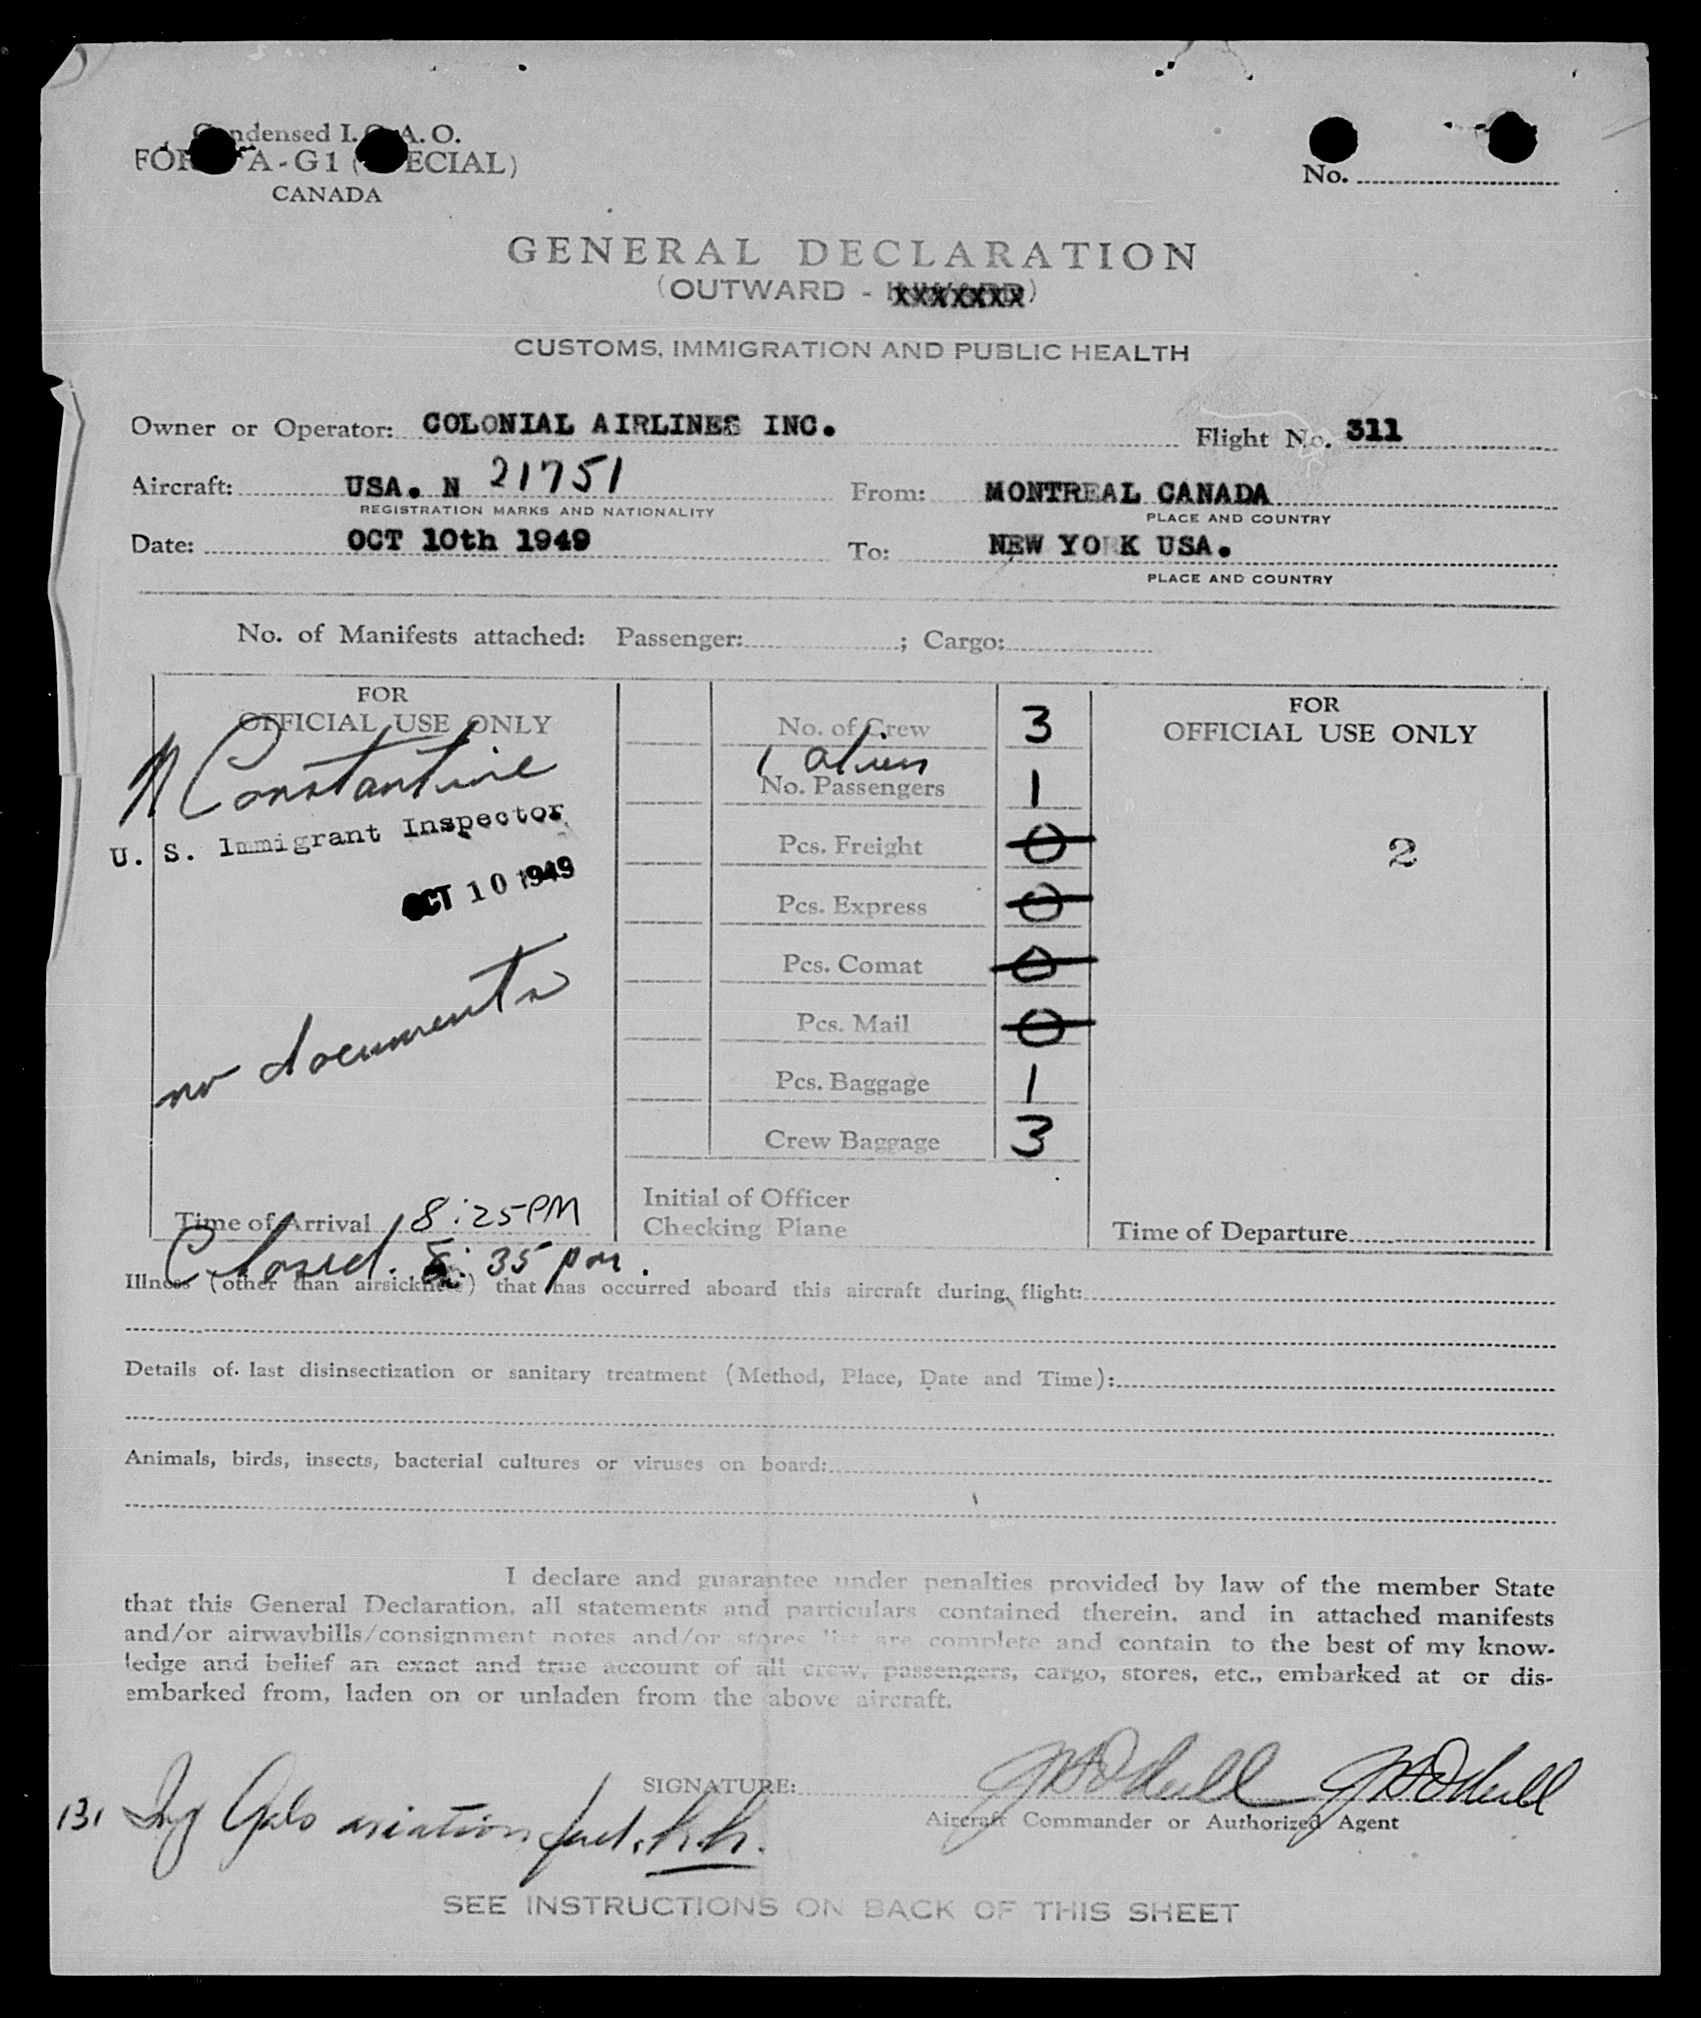 Condensed I.C.A.O.
FORM A-G1 (SPECIAL)
CANADA
No.
GENERAL DECLARATION
(OUTWARD - INWARD)
CUSTOMS, IMMIGRATION AND PUBLIC HEALTH
Owner or Operator: COLONIAL AIRLINES INC. Flight No. 311
Aircraft: USA. N 21751 From: MONTREAL CANADA
REGISTRATION MARKS AND NATIONALITY PLACE AND COUNTRY
Date: OCT 10th 1949 To: NEW YORK USA.
PLACE AND COUNTRY
No. of Manifests attached: Passenger: ; Cargo:
FOR
OFFICIAL USE ONLY
Constantine
U. S. Immigrant Inspector
OCT 10 1949
no documents
Time of Arrival 8:25 PM
Closed. 8:35 pm.
No. of Crew 3
1 alien
No. Passengers 1
Pcs. Freight 0
Pcs. Express 0
Pcs. Comat 0
Pcs. Mail 0
Pcs. Baggage 1
Crew Baggage 3
Initial of Officer
Checking Plane
FOR
OFFICIAL USE ONLY
2
Time of Departure
Illness (other than airsickness) that has occurred aboard this aircraft during flight:
Details of last disinsectization or sanitary treatment (Method, Place, Date and Time):
Animals, birds, insects, bacterial cultures or viruses on board:
I declare and guarantee under penalties provided by law of the member State
that this General Declaration, all statements and particulars contained therein, and in attached manifests
and/or airwaybills/consignment notes and/or stores list are complete and contain to the best of my know-
ledge and belief an exact and true account of all crew, passengers, cargo, stores, etc., embarked at or dis-
embarked from, laden on or unladen from the above aircraft.
SIGNATURE:
Aircraft Commander or Authorized Agent
131 Gals aviation fuel.
SEE INSTRUCTIONS ON BACK OF THIS SHEET